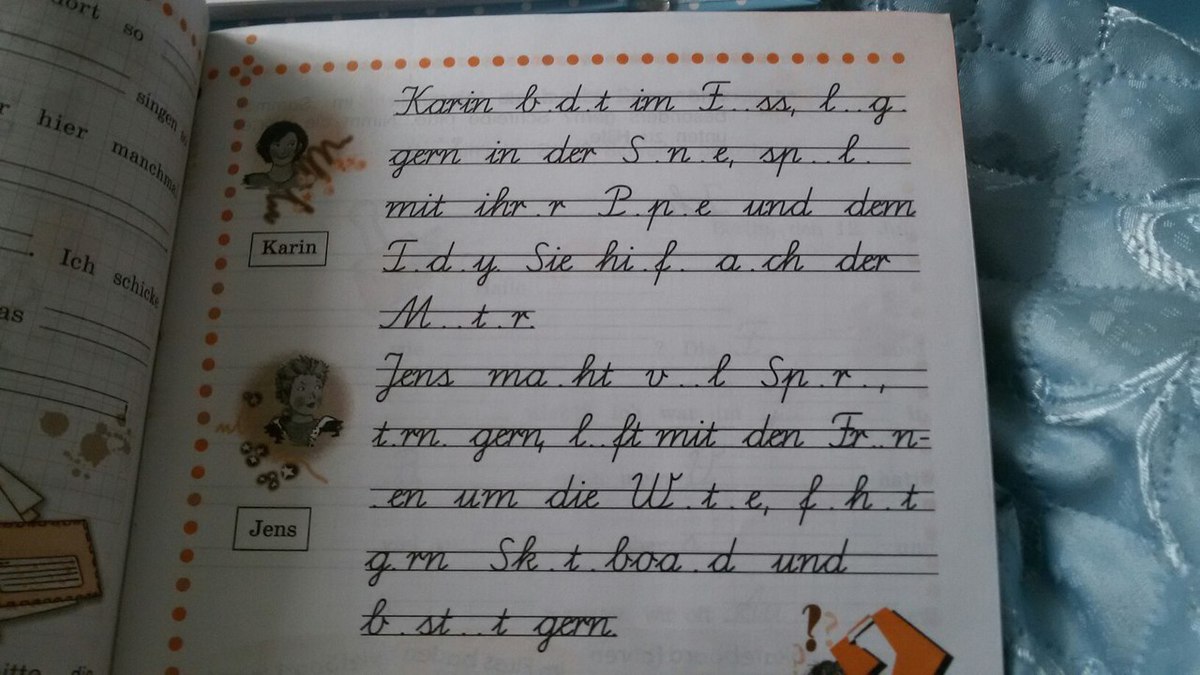 dort so
singen
hier manchma
Ich schicke
as
Karin b.d.t im F..ss, l..g.
gern in der S.n.e, sp..l.
mit ihr.r P.p.e und dem
T.d.y. Sie hi.f. a.ch der
M..t.r.
Karin
Jens ma.ht v..l Sp.r.,
t.rn. gern, l..ft mit den Fr..n-
.en um die W.t.e, f.h.t
g.rn Sk.t.boa.d und
b.st..t gern.
Jens
?